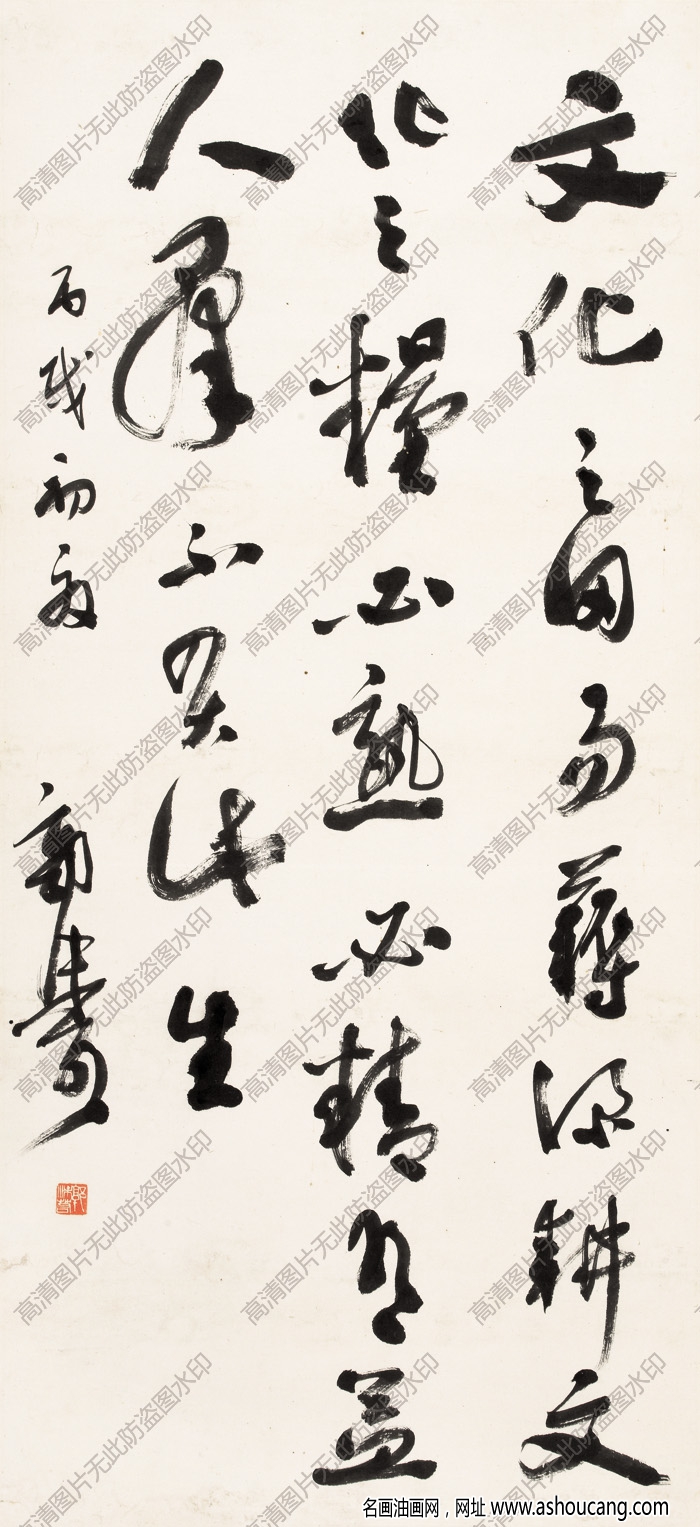 文化之田易深耕文
化之糧必熟必精有益
人羣不負此生
丙戌初夏
郭沫若
郭沫若
名画油画网，网址 www.ashoucang.com
高清图片无此防盗图水印